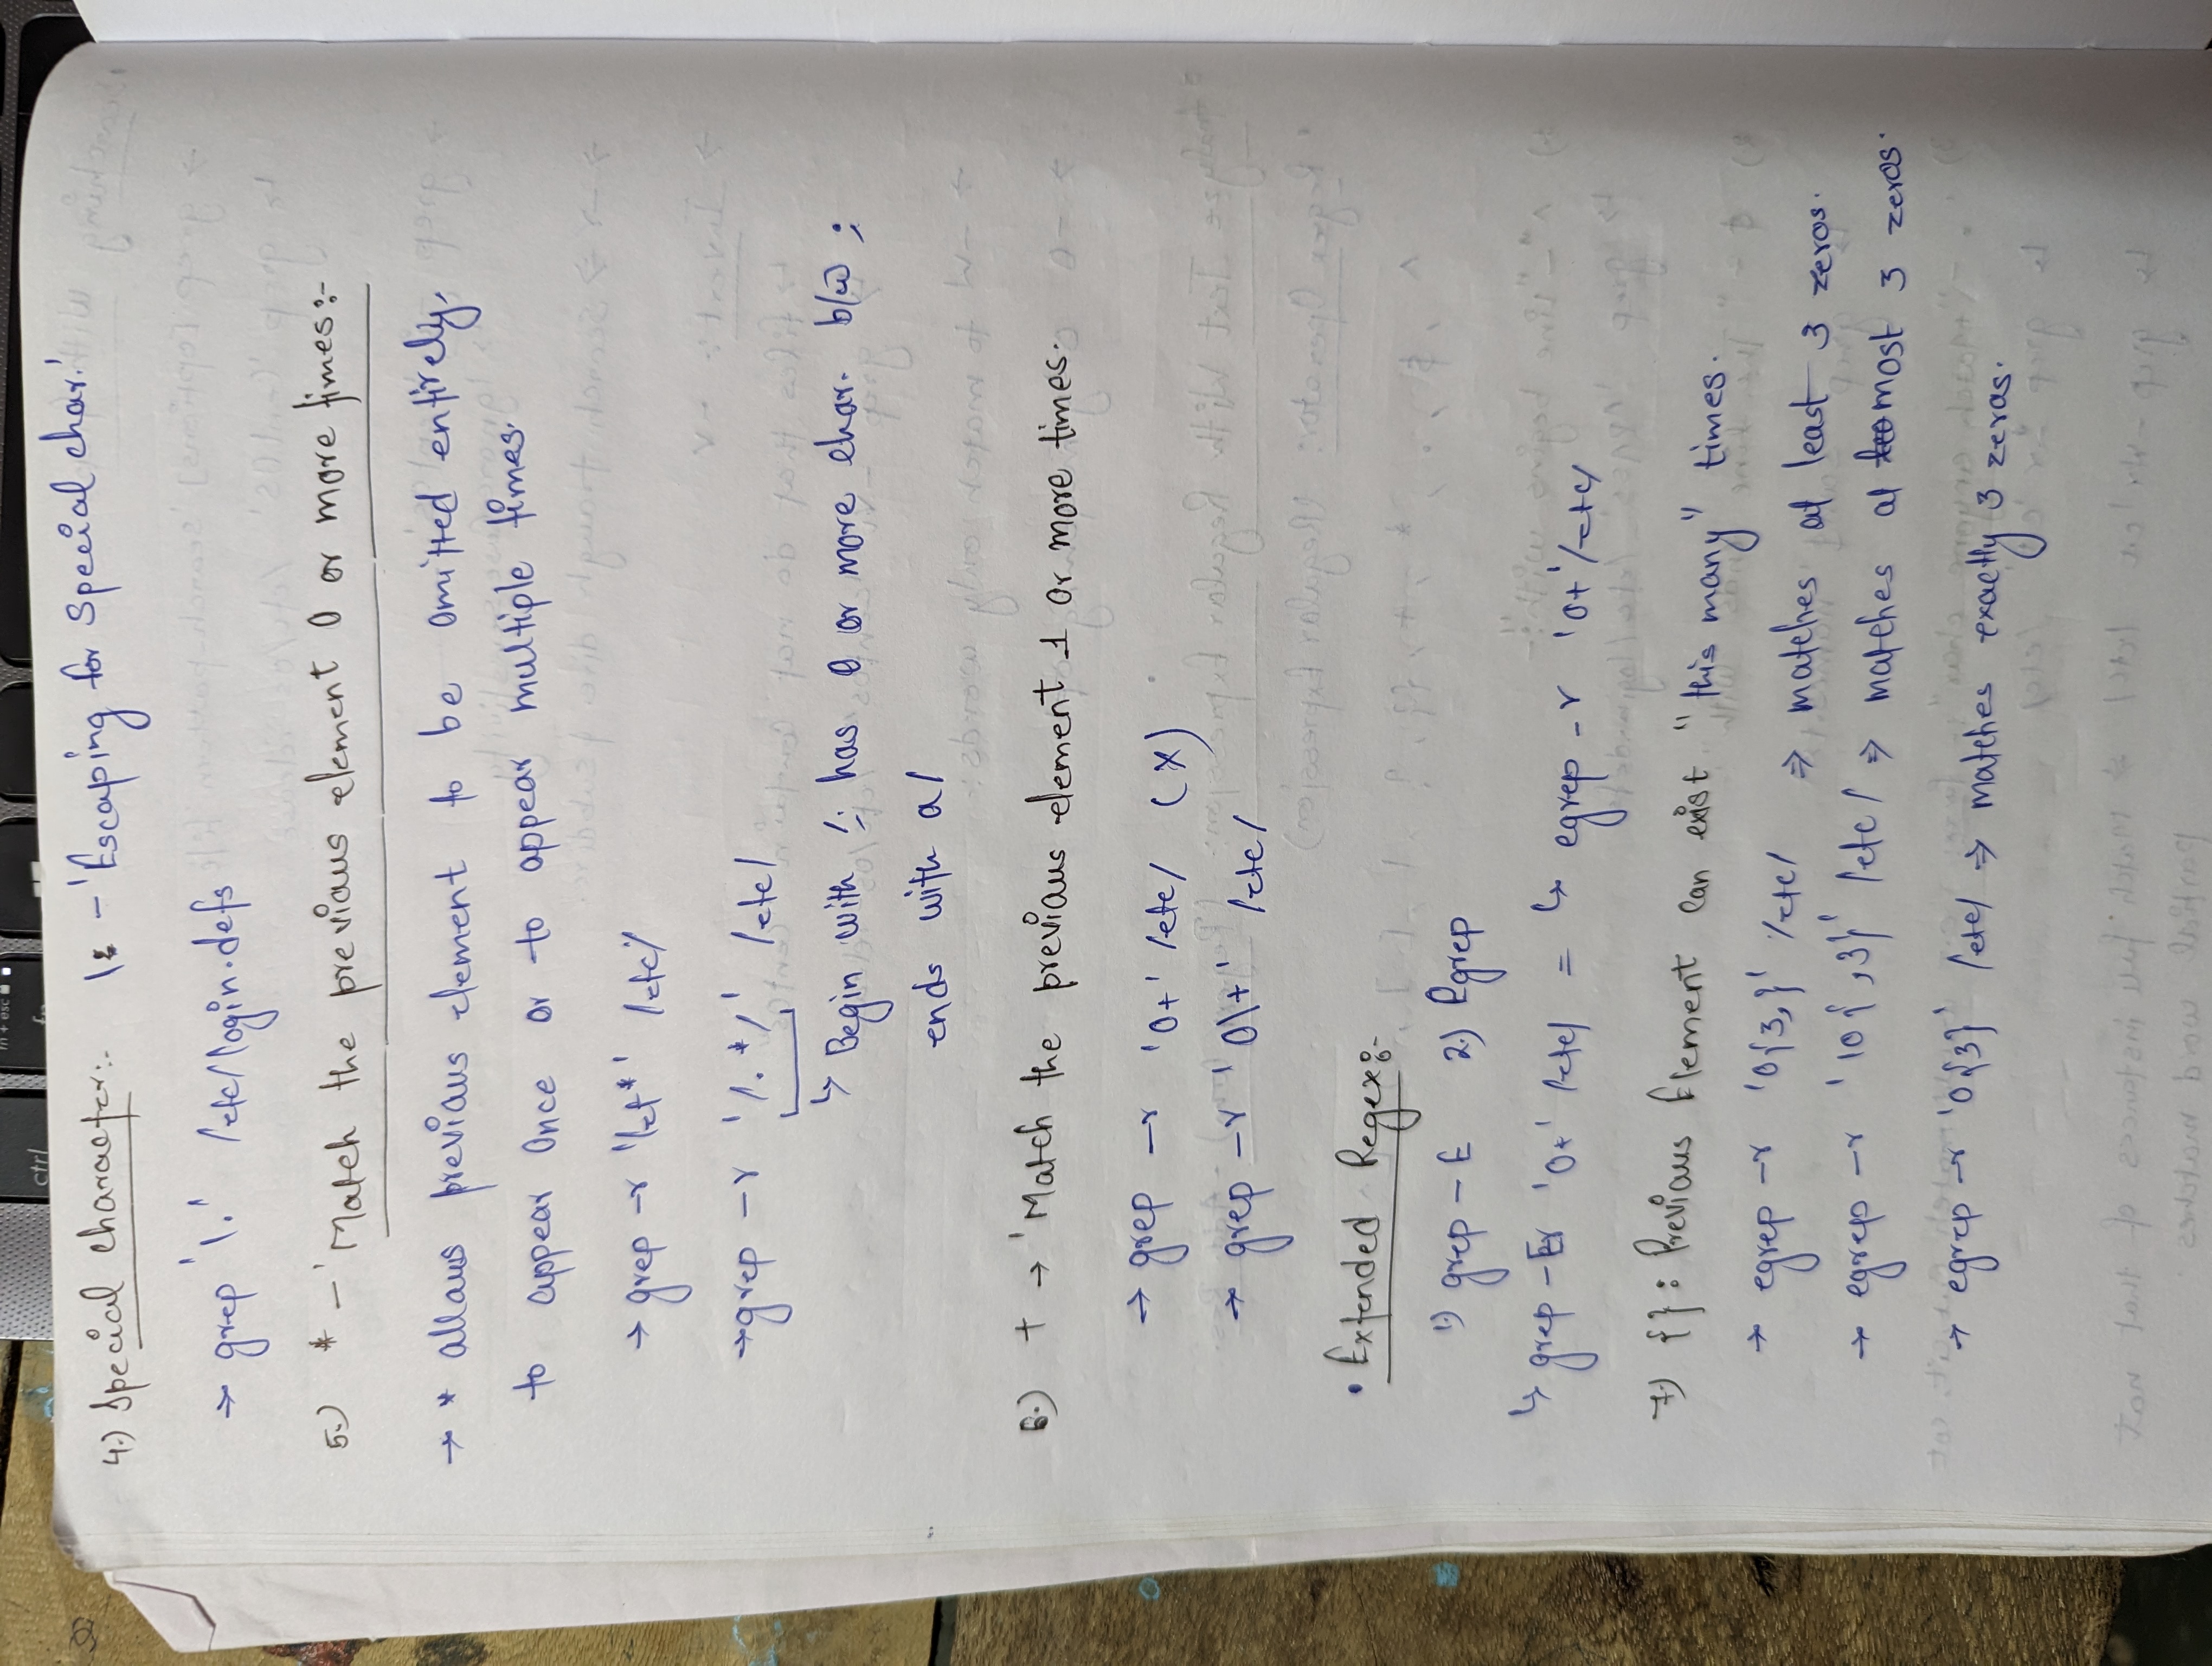 4.) Special character:- \ - 'Escaping for special char.'
→ grep '\.' /etc/login.defs
5.) * - 'Match the previous element 0 or more times:-
→ * allows previous element to be omitted entirely,
to appear once or to appear multiple times.
→ grep -r 'let*' /etc/
→ grep -r '/.*/' /etc/
↳ Begin with /; has 0 or more char. b/w ;
ends with a /
6.) + → 'Match the previous element 1 or more times.
→ grep -r '0+' /etc/ (x)
→ grep -r '0\+' /etc/
• Extended Regex:-
1) grep -E 2) Egrep
↳ grep -Er '0+' /etc/ = ↳ egrep -r '0+' /etc/
7.) { } : Previous Element can exist "this many" times.
→ egrep -r '0{3,}' /etc/ ⇒ matches at least 3 zeros.
→ egrep -r '10{,3}' /etc/ ⇒ matches at most 3 zeros.
→ egrep -r '0{3}' /etc/ ⇒ matches exactly 3 zeros.
ctrl
fn